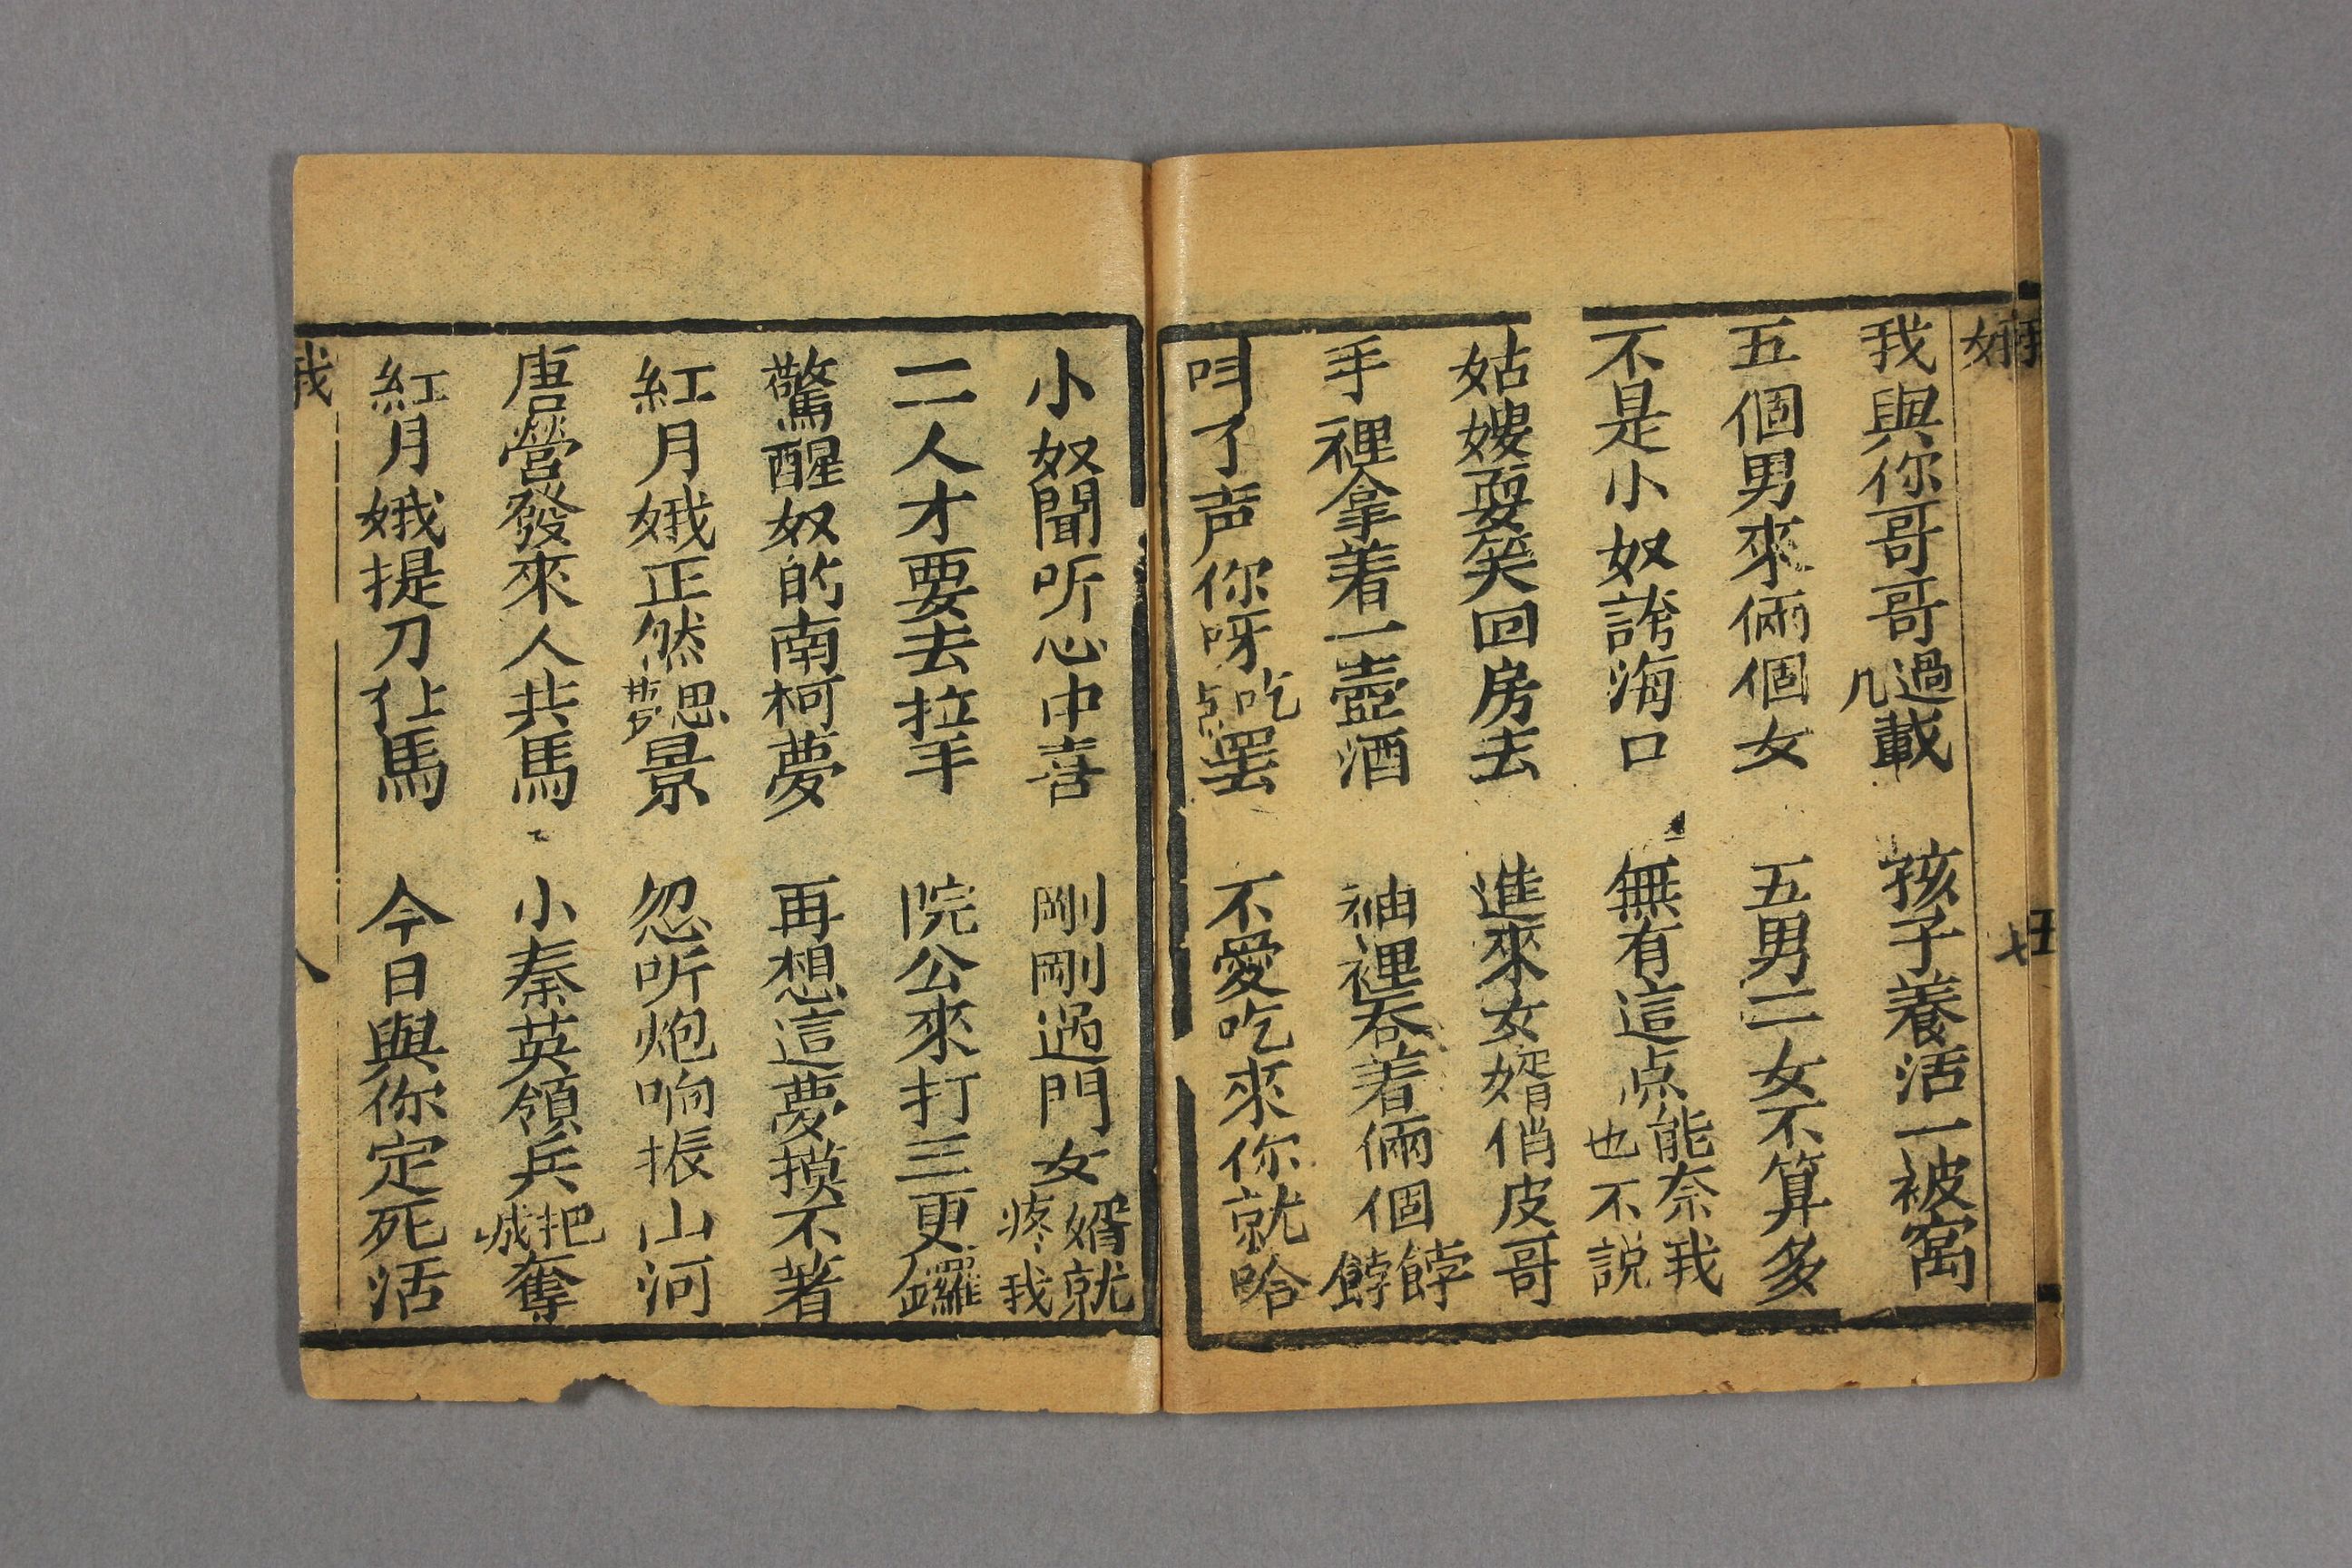 我與你哥哥過几載　孩子養活一被窩
五個男來倆個女　五男二女不算多
不是小奴誇海口　無有這点能奈我也不説
姑嫂耍笑回房去　進來女婿俏皮哥
手裡拿着一壺酒　袖裡吞着倆個餑餑
叫了声你呀吃点罷　不愛吃來你就哈
小奴聞听心中喜　剛剛過門女婿就疼我
二人才要去拉手　院公來打三更鑼
驚醒奴的南柯夢　再想這夢摸不著
紅月娥正然思夢景　忽听炮响振山河
唐營發來人共馬　小秦英領兵把城奪
紅月娥提刀跕馬　今日與你定死活